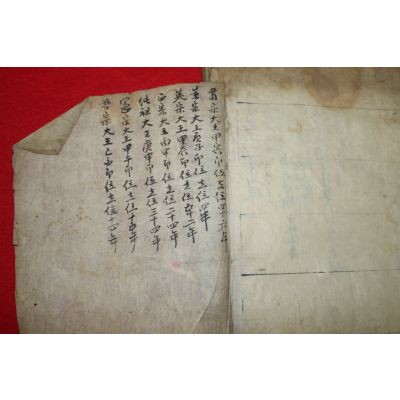 肅宗大王甲寅即位在位四十六年
景宗大王庚子即位在位四年
英宗大王甲辰即位在位五十二年
正宗大王丙申即位在位二十四年
純祖大王庚申即位在位三十四年
憲宗大王甲午即位在位十五年
哲宗大王己酉即位在位十四年